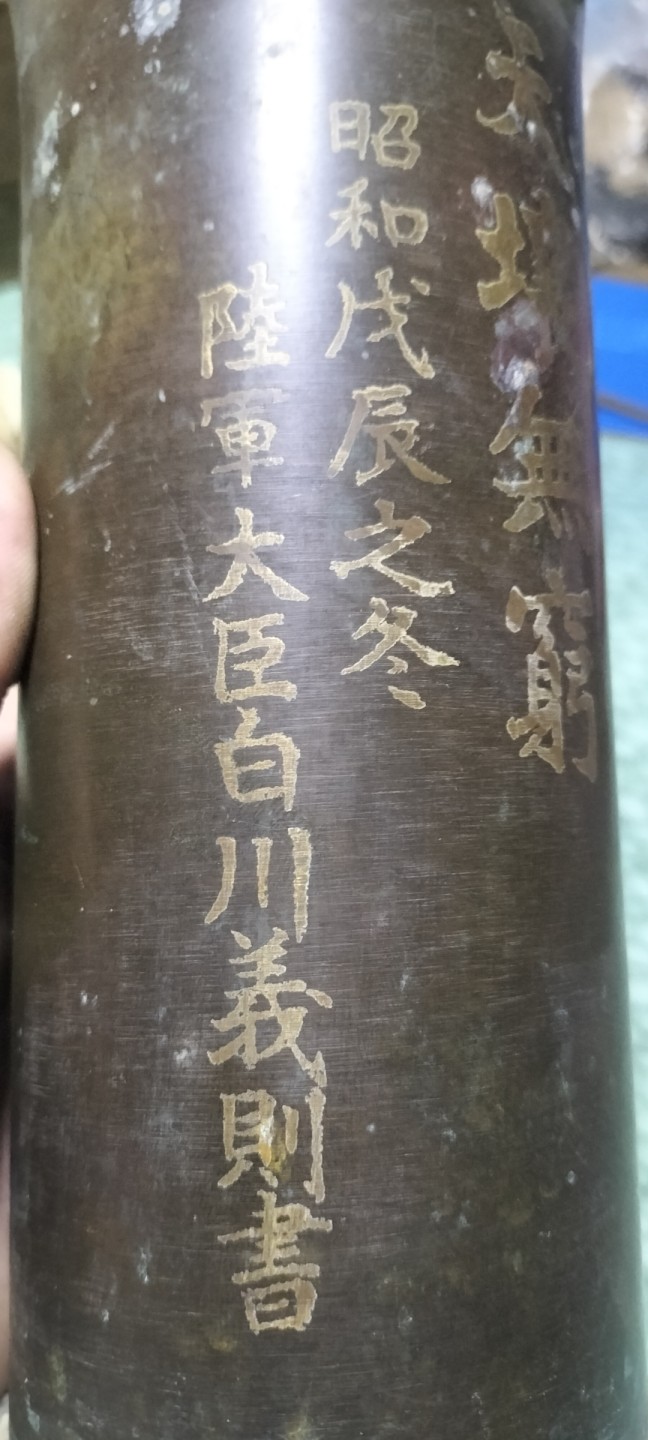 天壌無窮
昭和戊辰之冬
陸軍大臣白川義則書